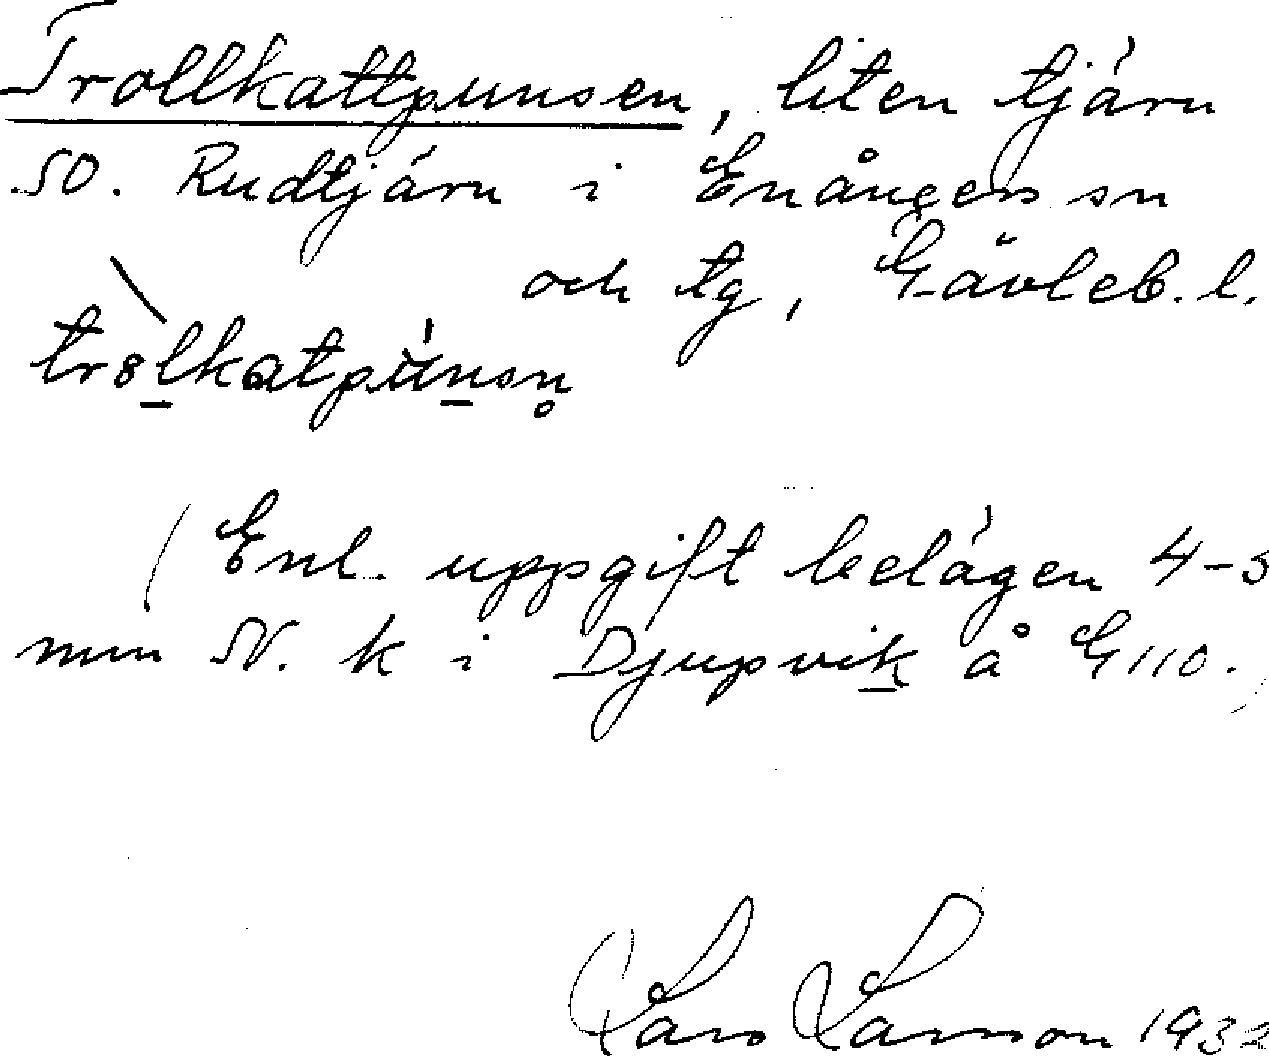 Trollkattpunsen, liten tjärn
SO. Rudtjärn i Enångers sn
och tg, Gävleb. l.
trolkatpunsn
(Enl. uppgift belägen 4-5
mm SV. k i Djupvik å G110.)
Lars Larsson 1932